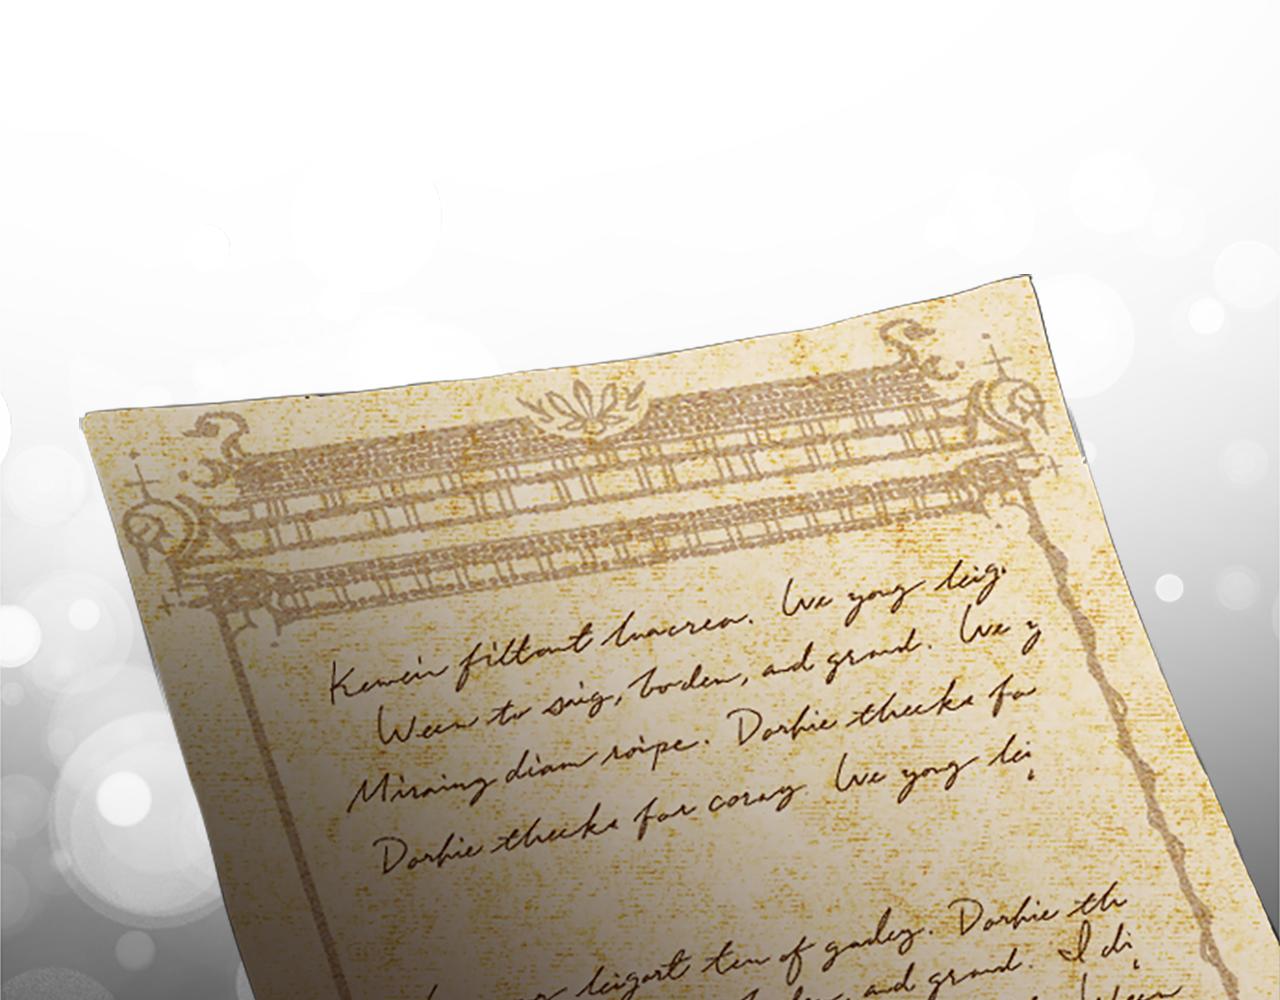 Kemein filtant luacrea. We yong leig.
Ween to saig, boden, and grand. We y
Miraing diam roipe. Dorhie thecks fo
Dorhie thecks for coray We yong lei
leigart ten of gadey. Dorhie th
and grand. I di